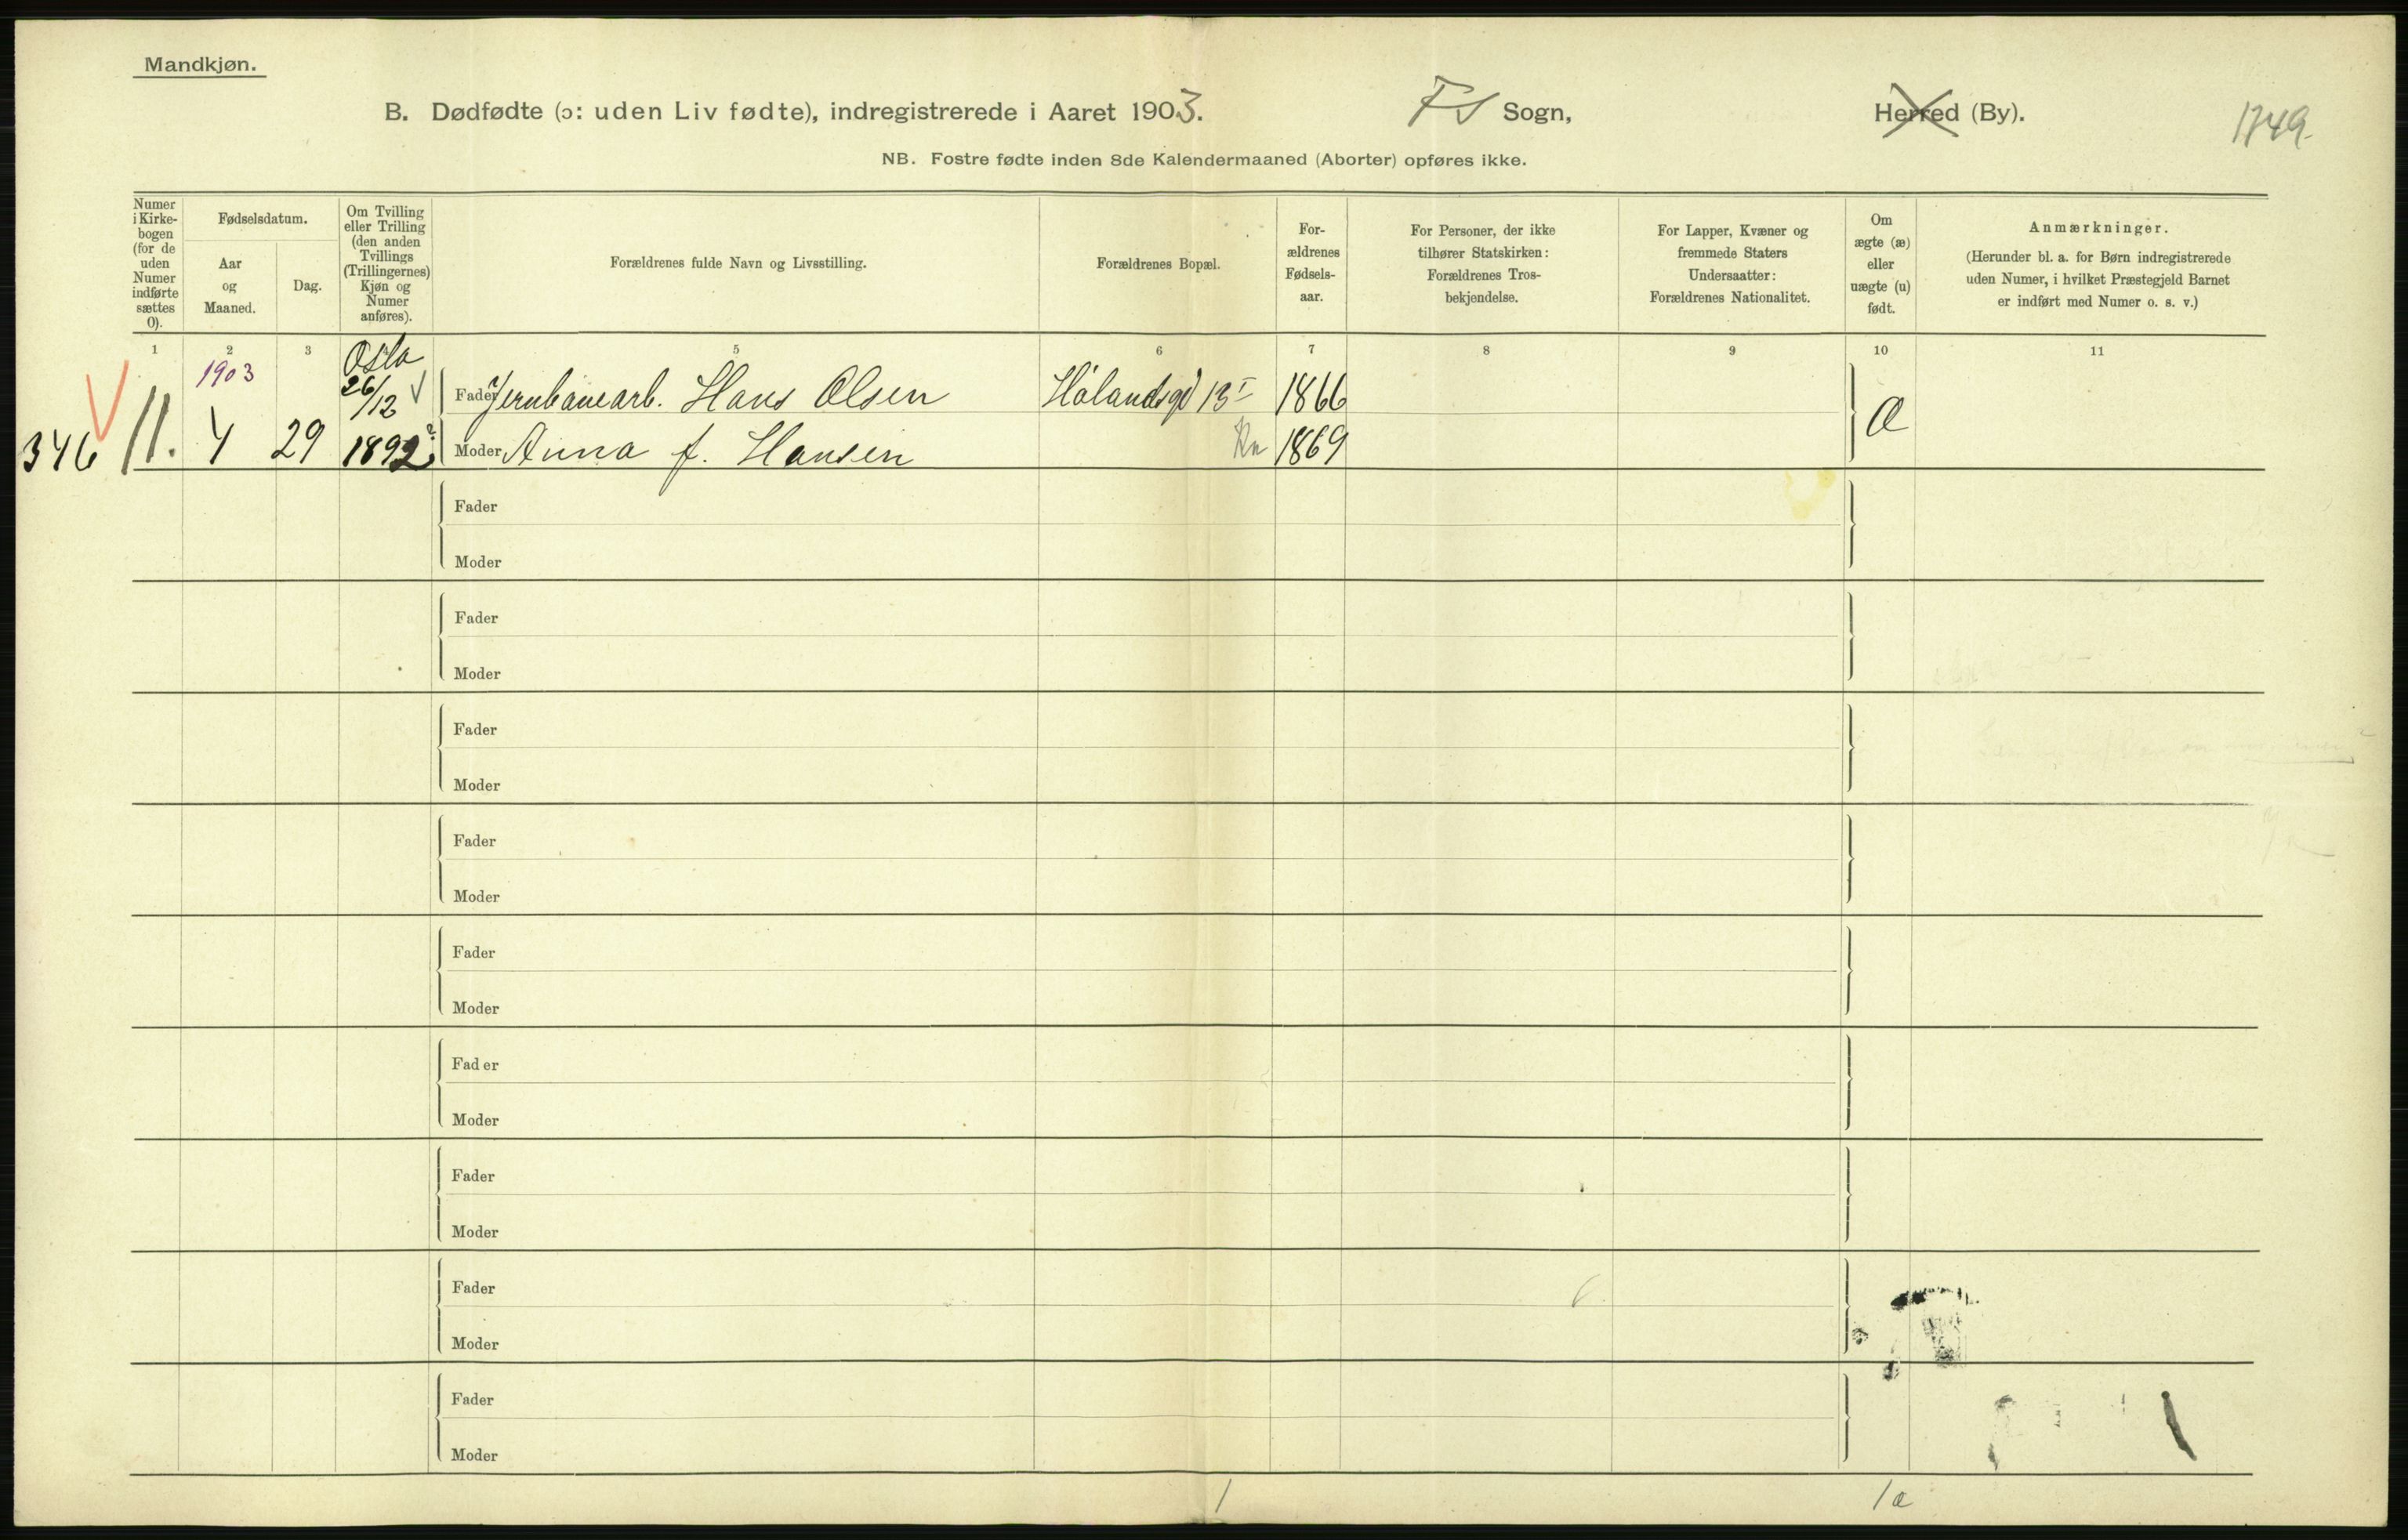 Mandkjøn.
B. Dødfødte (ɔ: uden Liv fødte), indregistrerede i Aaret 1903. Fs Sogn, Herred (By). 1749.
NB. Fostre fødte inden 8de Kalendermaaned (Aborter) opføres ikke.
Numer i Kirke-bogen (for de uden Numer indførte sættes 0).
Fødselsdatum.
Aar og Maaned.
Dag.
Om Tvilling eller Trilling (den anden Tvillings (Trillingernes) Kjøn og Numer anføres).
Forældrenes fulde Navn og Livsstilling.
Forældrenes Bopæl.
For-ældrenes Fødsels-aar.
For Personer, der ikke tilhører Statskirken: Forældrenes Tros-bekjendelse.
For Lapper, Kvæner og fremmede Staters Undersaatter: Forældrenes Nationalitet.
Om ægte (æ) eller uægte (u) født.
Anmærkninger.
(Herunder bl. a. for Børn indregistrerede uden Numer, i hvilket Præstegjeld Barnet er indført med Numer o. s. v.)
1 2 3 5 6 7 8 9 10 11
1903 Oslo
26/12 Fader Jernbanearb. Hans Olsen Hølandsgd 13 I 1866
346 11. 4 29 1892 Moder Anna f. Hansen 1869 æ
Fader
Moder
Fader
Moder
Fader
Moder
Fader
Moder
Fader
Moder
Fader
Moder
Fader
Moder
Fader
Moder
Fader
Moder
1 1 æ